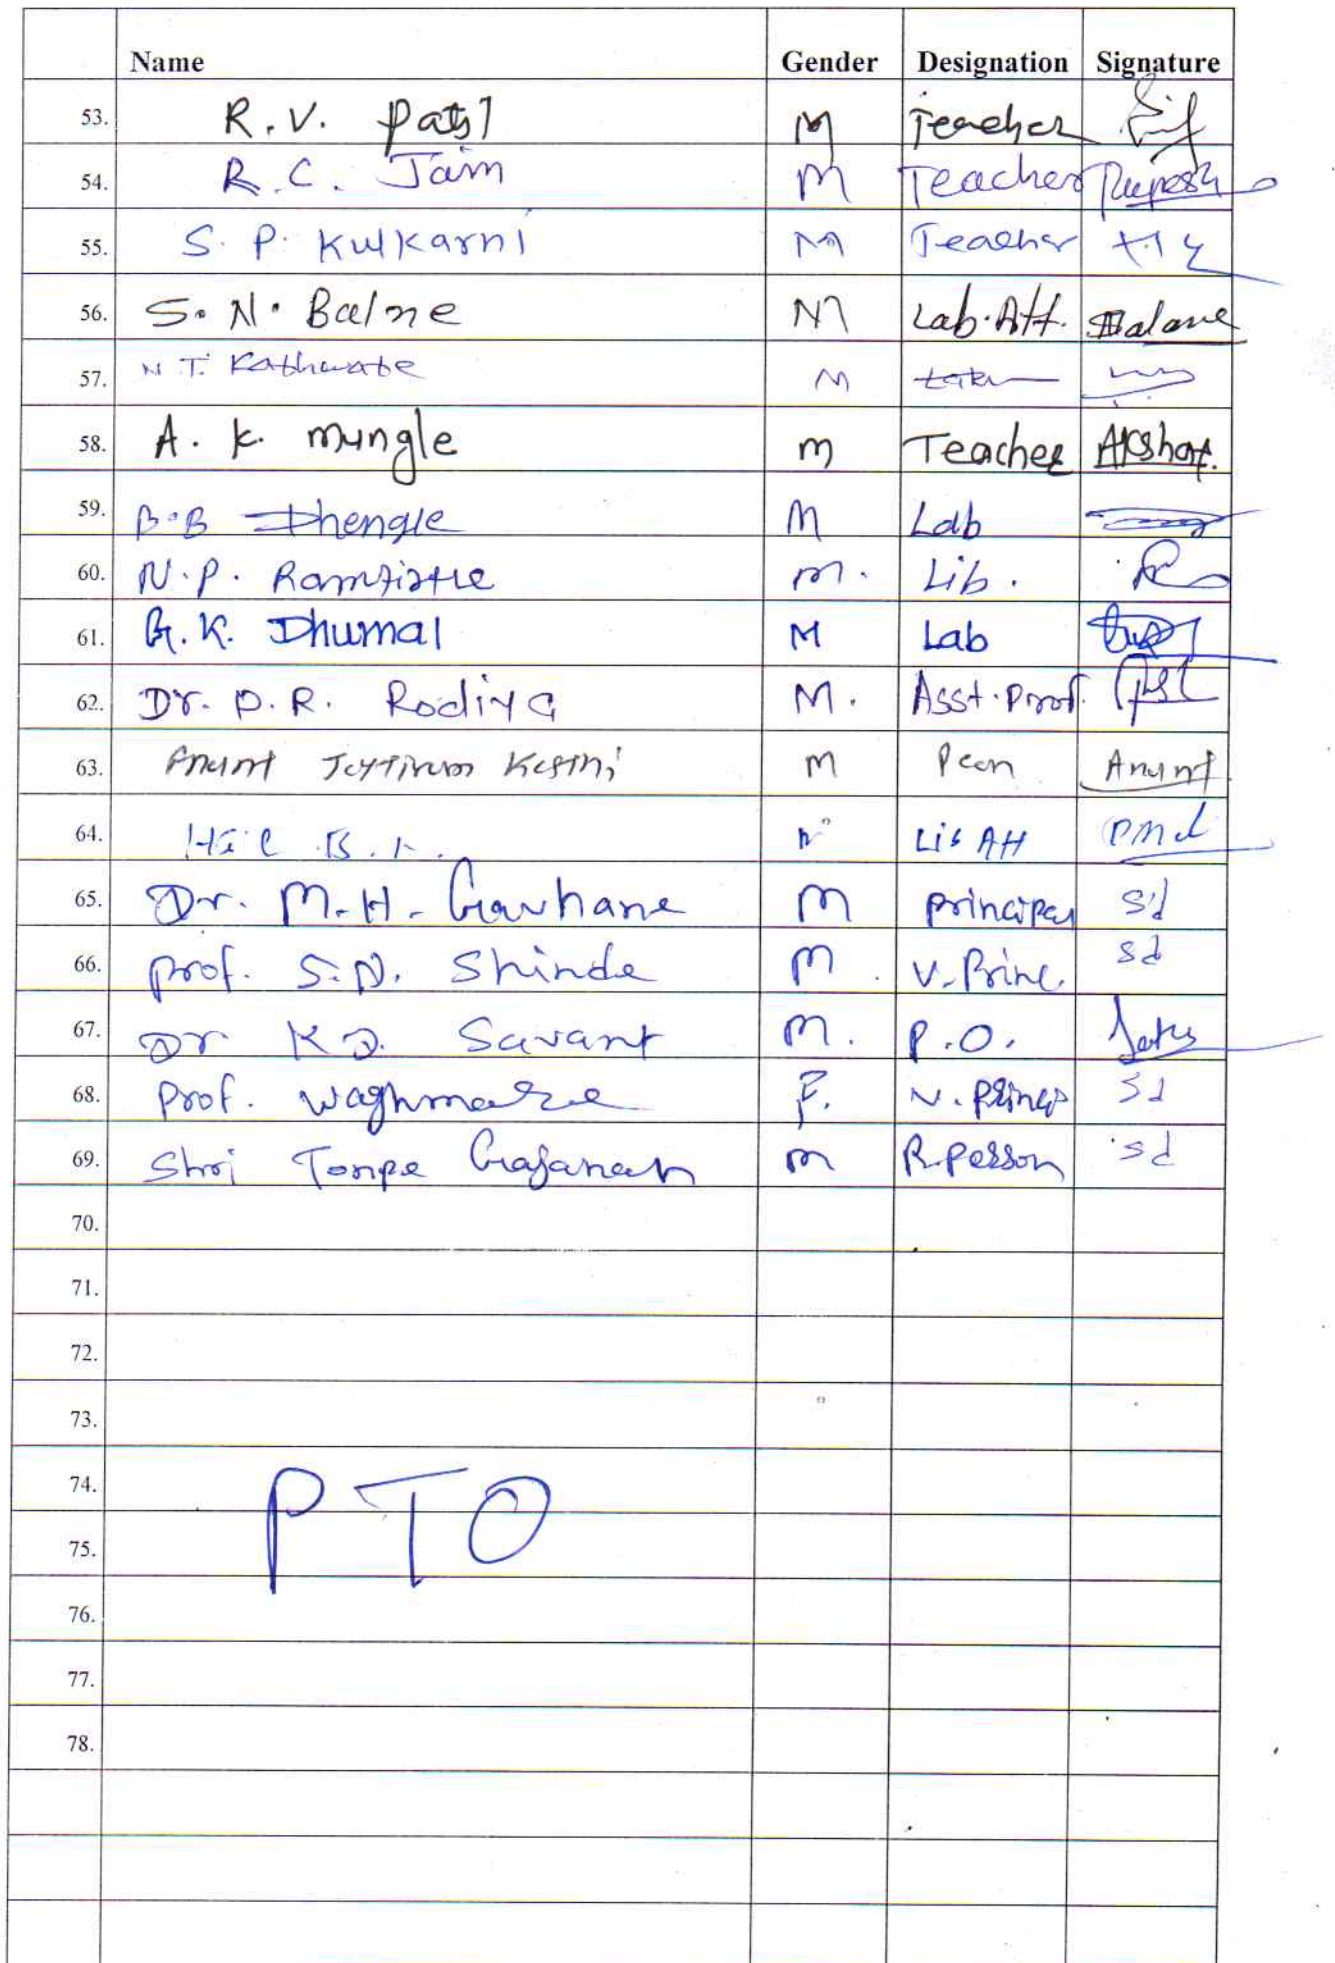 Name Gender Designation Signature
53. R.V. Patil M Teacher
54. R.C. Jain M Teacher Rupesh
55. S. P. Kulkarni M Teacher
56. S. N. Balne M Lab. Att. Balane
57. N T. Kathwate M
58. A. K. Mungle M Teacher Akshay.
59. B.B Dhengle M Lab
60. N.P. Ramtirthe M. Lib.
61. G.K. Dhumal M Lab
62. Dr. D.R. Rodiya M. Asst. Prof.
63. Anant M Peon Anant
64. Lib Att
65. Dr. M.H. Gavhane M Principal Sd
66. Prof. S.N. Shinde M V. Princ. Sd
67. Dr K D. Savant M. P.O.
68. Prof. Waghmare F. V. Princp Sd
69. Shri Tompe Gajanan M R.Person Sd
70.
71.
72.
73.
74. PTO
75.
76.
77.
78.